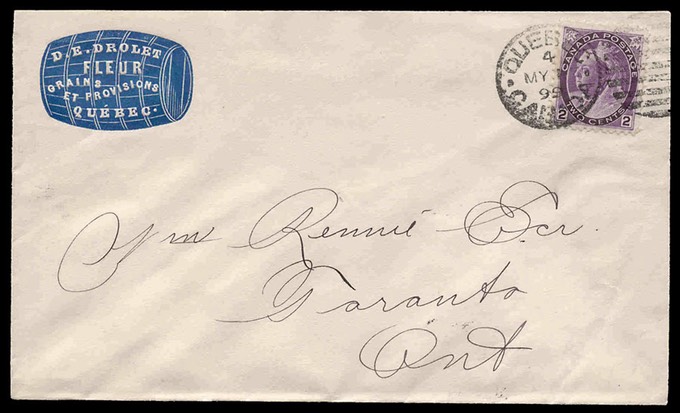 D. E. DROLET
FLEUR
GRAINS
ET PROVISIONS
QUÉBEC.
QUEBEC
4
MY
99
CANADA
CANADA POSTAGE
TWO CENTS
2 2
Wm Rennie Esr.
Toronto
Ont